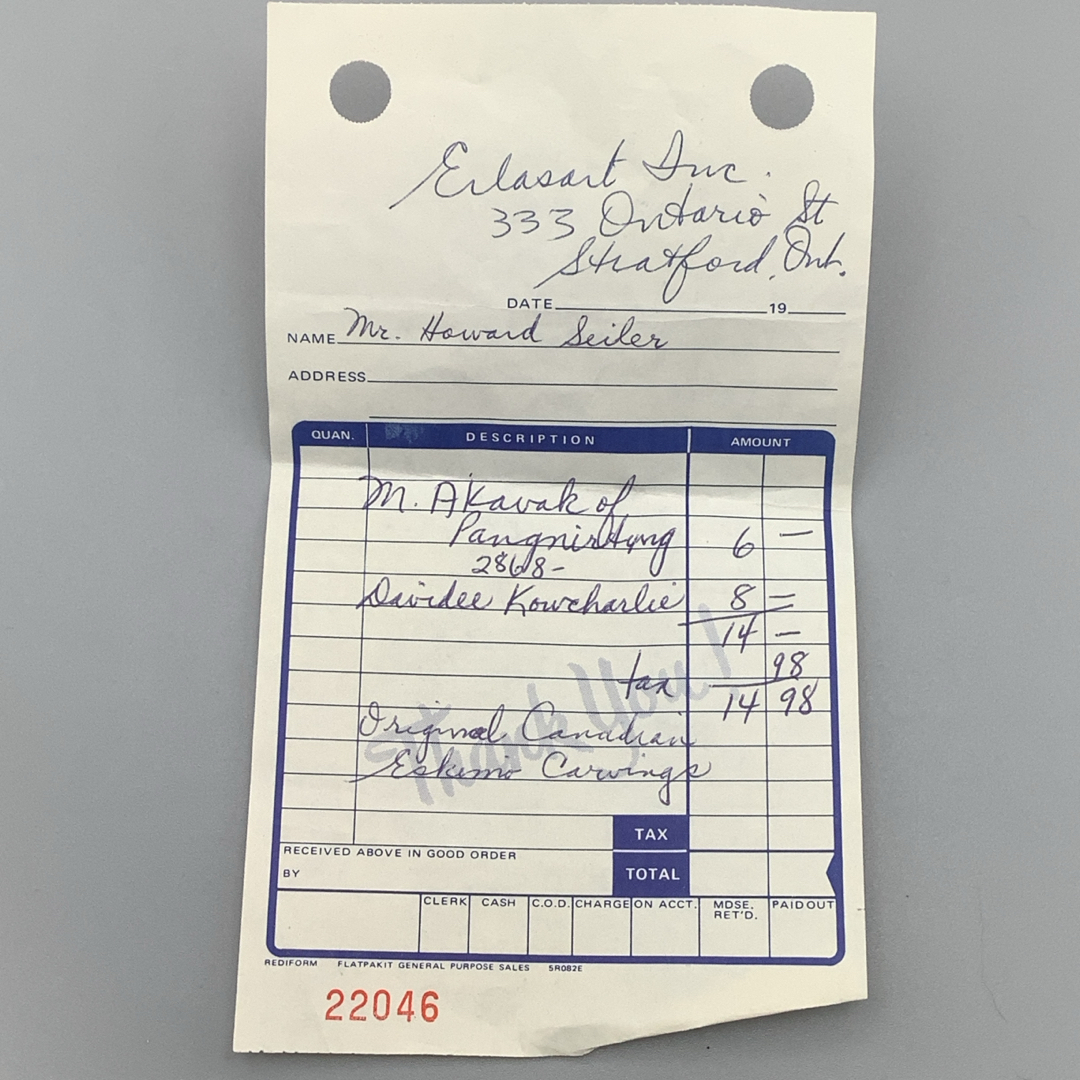 Erlasart Inc.
333 Ontario St
Stratford, Ont.
DATE 19
NAME Mr. Howard Seiler
ADDRESS
QUAN. DESCRIPTION AMOUNT
M. Akavak of
Pangnirtung 6 —
2868-
Davidee Kowcharlie 8 =
14 —
tax 98
14 98
Original Canadian
Eskimo Carvings
Thank You!
TAX
RECEIVED ABOVE IN GOOD ORDER
BY TOTAL
CLERK CASH C.O.D. CHARGE ON ACCT. MDSE. RET'D. PAID OUT
REDIFORM FLATPAKIT GENERAL PURPOSE SALES 5R082E
22046